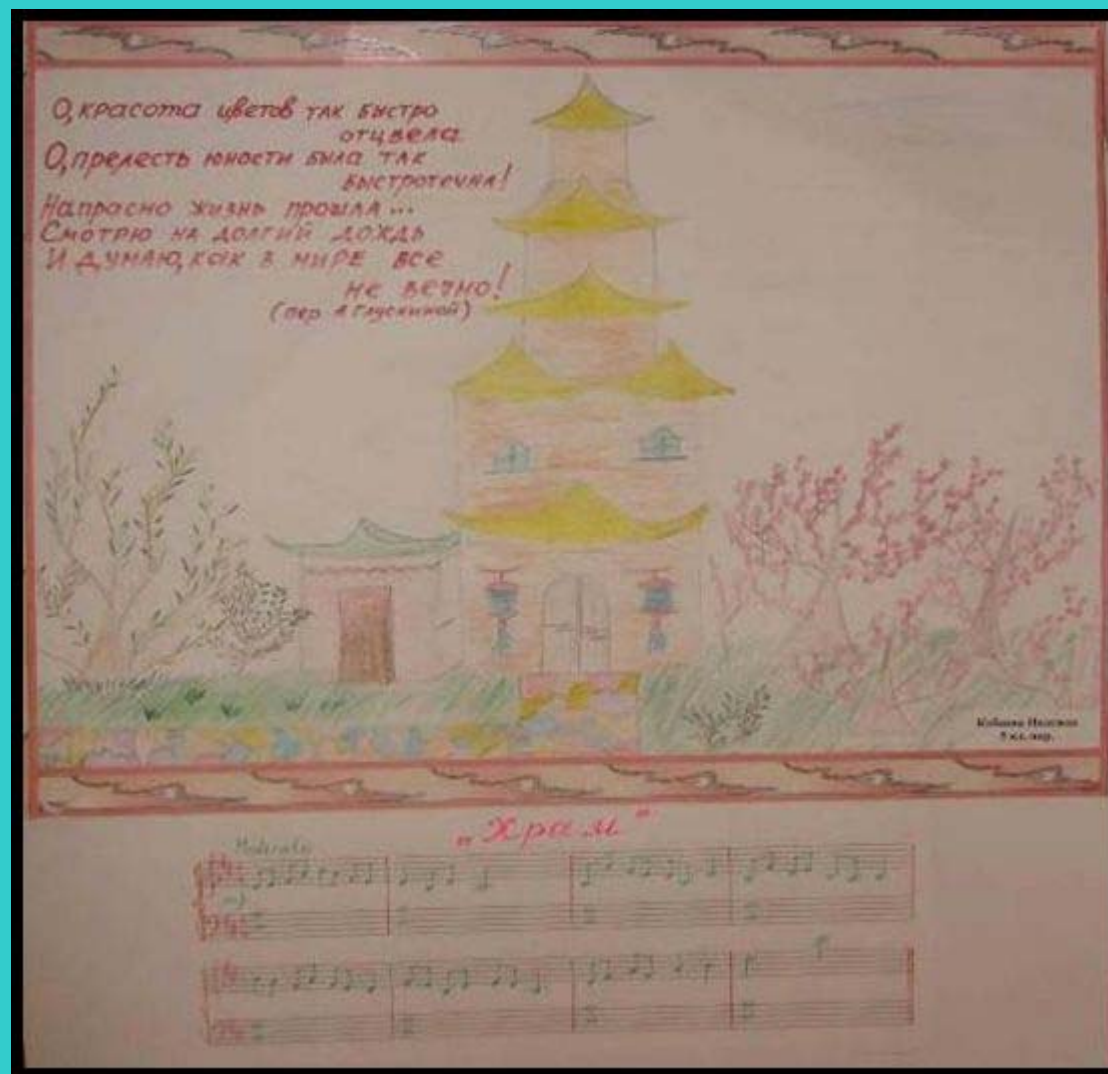 О, красота цветов так быстро
отцвела
О, прелесть юности была так
быстротечна!
Напрасно жизнь прошла...
Смотрю на долгий дождь
И думаю, как в мире все
не вечно!
(пер А Глускиной)
5 кл.
„Храм"
Moderato